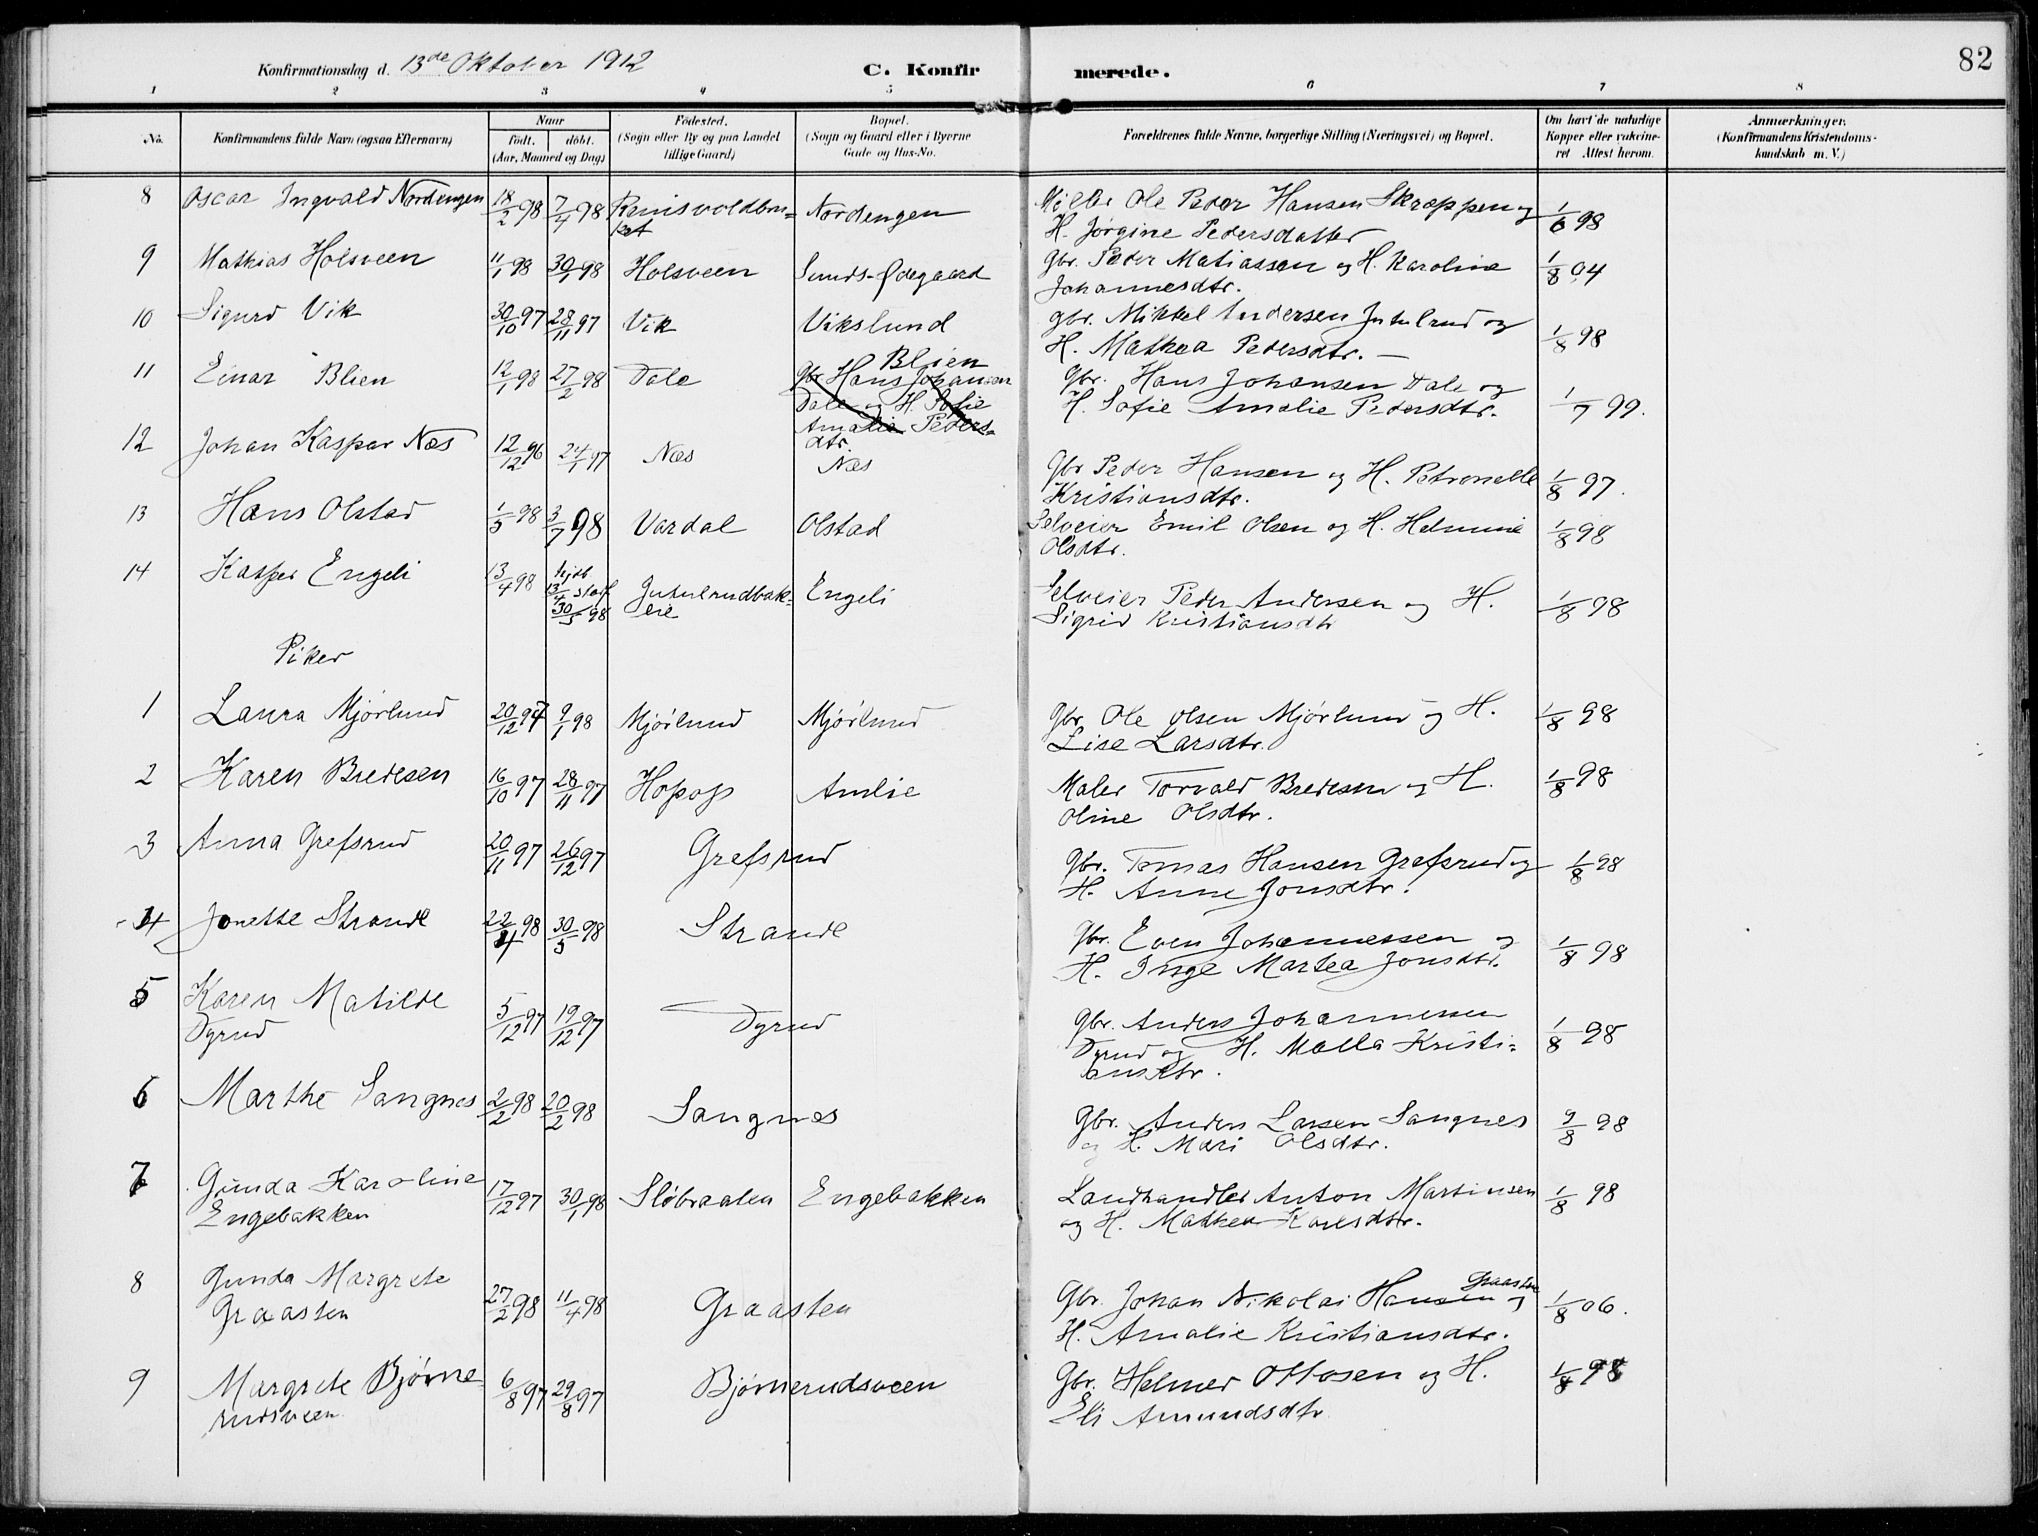 82
Konfirmationsdag d. 13de Oktober 1912 C. Konfirmerede.
1 2 3 4 5 6 7 8
No. Konfirmandens fulde Navn (ogsaa Efternavn) Naar Födested. Bopæl. Forældrenes fulde Navne, borgerlige Stilling (Næringsvei) og Bopæl. Om havt de naturlige Anmærkninger.
födt. döbt. (Sogn eller By og paa Landet (Sogn og Gaard eller i Byerne Kopper eller vakcine- (Konfirmandens Kristendoms-
(Aar, Maaned og Dag) tillige Gaard) Gade og Hus-No. ret Attest herom. kundskab m. V.)
8 Oscar Ingvald Nordengen 18/2 98 7/4 98 Nordengen Møller Ole Peder Hansen Skræppen og 1/6 98
H. Jørgine Pedersdatter
9 Mathias Holsveen 11/1 98 30/1 98 Holsveen Sunds-Ødegaard Gbr. Peder Matiassen og H. Karoline 1/8 04
Johannesdtr.
10 Sigurd Vik 30/10 97 28/11 97 Vik Vikslund gbr. Mikkel Andersen Jutulrud og 1/8 98
H. Mathea Pedersdtr. —
11 Einar Blien 12/1 98 27/2 98 Dale Blien Gbr. Hans Johansen Dale og 1/7 99.
Gbr Hans Johansen H. Sofie Amalie Pedersdtr.
Dale og H. Sofie
Amalie Peders-
dtr.
12 Johan Kaspar Næs 12/12 96 24/1 97 Næs Næs Gbr Peder Hansen og H. Petronelle 1/8 97.
Kristiansdtr.
13 Hans Olstad 1/5 98 3/7 98 Vardal Olstad Selveier Emil Olsen og H. Helmine 1/8 98
Olsdtr.
14 Kasper Engeli 13/4 98 hjdb 13/4 stadf 30/5 98 Jutulrudbak- Engeli Selveier Peder Andersen og H. 1/8 98
eie Sigrid Kristiansdtr
Piker
1 Laura Mjørlund 20/12 97 9/1 98 Mjørlund Mjørlund Gbr. Ole Olsen Mjørlund og H. 1/8 98
Lise Larsdtr.
2 Karen Bredesen 16/10 97 28/11 97 Hopop Amlie Maler Torvald Bredesen og H. 1/8 98
Oline Olsdtr.
3 Anna Grefsrud 20/11 97 26/12 97 Grefsrud Gbr. Tomas Hansen Grefsrud og 1/8 98
H. Anne Jonsdtr.
4 Jonette Strande 22/4 98 30/5 98 Strande Gbr. Even Johannessen og 1/8 98
H. Inge Martea Jonsdtr.
5 Karen Matilde 5/12 97 19/12 97 Dyrud Gbr. Anders Johannessen 1/8 98
Dyrud Dyrud og H. Malla Kristi-
ansdtr.
6 Marthe Sangnes 2/2 98 20/2 98 Sangnes Gbr. Anders Larsen Sangnes 9/8 98
og H. Mari Olsdtr.
7 Gunda Karoline 17/12 97 30/1 98 Slöbraaten Engebakken Landhandler Anton Martinsen 1/8 98
Engebakken og H. Mathea Karlsdtr.
8 Gunda Margrete 27/2 98 11/4 98 Graasten Gbr. Johan Nikolai Hansen Graasten og 1/8 06.
Graasten H. Amalie Kristiansdtr.
9 Margrete Bjørne- 6/8 97 29/8 97 Bjørnerudsveen Gbr. Helmer Ottosen og H. 1/8 98
rudsveen Eli Amundsdtr